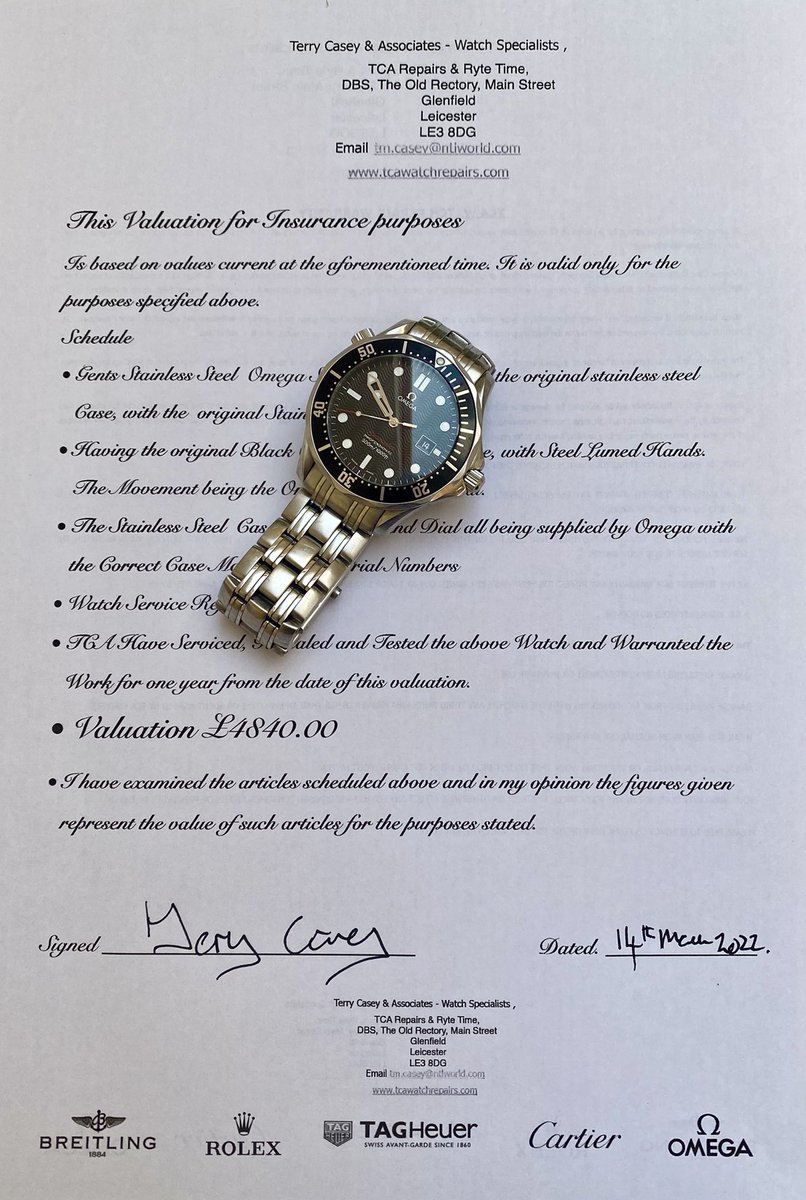 Terry Casey & Associates - Watch Specialists ,
TCA Repairs & Ryte Time,
DBS, The Old Rectory, Main Street
Glenfield
Leicester
LE3 8DG
Email tm.casey@ntlworld.com
www.tcawatchrepairs.com
This Valuation for Insurance purposes
Is based on values current at the aforementioned time. It is valid only, for the
purposes specified above.
Schedule
• Gents Stainless Steel Omega the original stainless steel
Case, with the original
• Having the original Black with Steel Lumed Hands.
The Movement being the
• The Stainless Steel and Dial all being supplied by Omega with
the Correct Case Numbers
• Watch Service
• TCA Have Serviced, and Tested the above Watch and Warranted the
Work for one year from the date of this valuation.
• Valuation £4840.00
• I have examined the articles scheduled above and in my opinion the figures given
represent the value of such articles for the purposes stated.
Signed Terry Casey Dated. 14th 2022.
50
40
30
20
OMEGA
14
Terry Casey & Associates - Watch Specialists ,
TCA Repairs & Ryte Time,
DBS, The Old Rectory, Main Street
Glenfield
Leicester
LE3 8DG
Email tm.casey@ntlworld.com
www.tcawatchrepairs.com
BREITLING
1884
ROLEX
TAG
HEUER
TAGHeuer
SWISS AVANT-GARDE SINCE 1860
Cartier
OMEGA